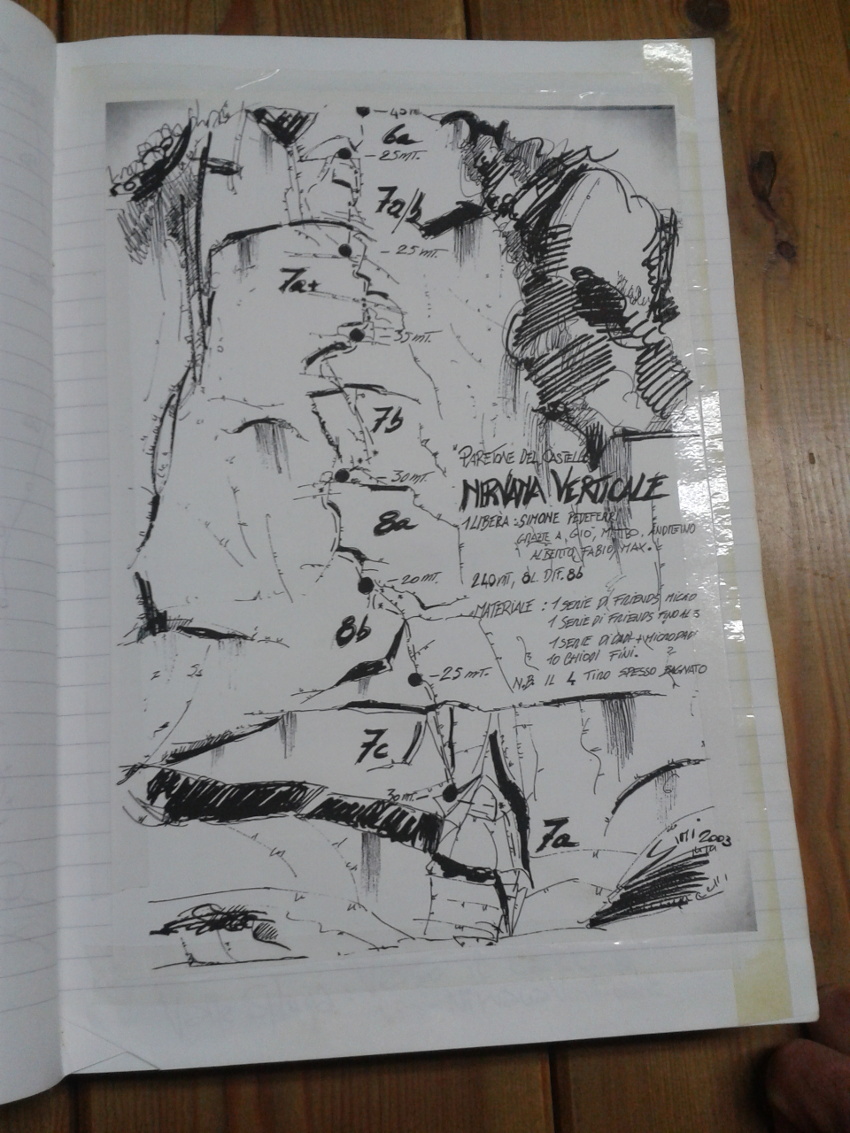 40m.
6a
25mt.
7a/b
25mt.
7a+
35mt.
7b
30mt.
8a
20mt.
8b
25mt.
7c
30mt.
7a
"PARETONE DEL CASTELLO"
NIRVANA VERTICALE
1 LIBERA: SIMONE PEDEFERRI
GRAZIE A, GIO', MATTEO, ANDREINO
ALBERTO, FABIO, MAX.
240mt, 8L DIF. 8b
MATERIALE: 1 SERIE DI FRIENDS MICRO
1 SERIE DI FRIENDS FINO AL 3
1 SERIE DI DADI + MICRODADI
10 CHIODI FINI.
N.B. IL 4 TIRO SPESSO BAGNATO
2003